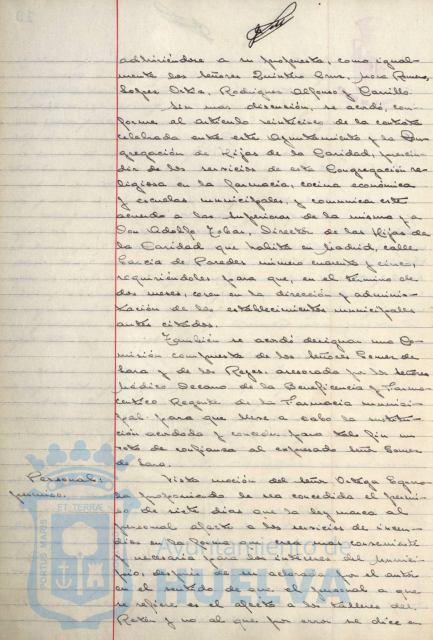 adhiriéndose a su propuesta, como igual-
mente los señores Quintero Cruz, Mora Romero,
López Ortiz, Rodríguez Alfonso y Carrillo.
Sin mas discusión, se acordó, con-
forme al artículo veinticinco de la contrata
celebrada entre este Ayuntamiento y la Con-
gregación de Hijas de la Caridad, prescin-
dir de los servicios de esta Congregación re-
ligiosa en la farmacia, cocina económica
y escuelas municipales, y comunicar este
acuerdo a las Superioras de la misma y a
Don Adolfo Tobar, Director de las Hijas de
la Caridad que habita en Madrid, calle
García de Paredes número cuarenta y cinco,
requiriéndoles para que, en el término de
dos meses, cesen en la dirección y adminis-
tración de los establecimientos municipales
antes citados.
También se acordó designar una Co-
misión compuesta de los señores Gómez de
Lara y de los Reyes, asesorada por los señores
Médico Decano de la Beneficencia y Farma-
céutico Regente de la Farmacia munici-
pal para que lleve a cabo la sustitu-
ción acordada y conceder para tal fin un
voto de confianza al expresado señor Gómez
de Lara.
Personal:
permiso.
Vista moción del señor Ortega
proponiendo le sea concedido el permi-
so de siete días que la ley marca al
personal afecto a los servicios de incen-
dios en la forma que crea mas conveniente
y necesaria para los intereses del munici-
pio, después de ser aclarada por el autor
en el sentido de que el personal a que
se refiere es el afecto a los talleres del
Retén y no al que por error se dice en
PORTUS MARIS
ET TERRÆ
Ayuntamiento de
HUELVA